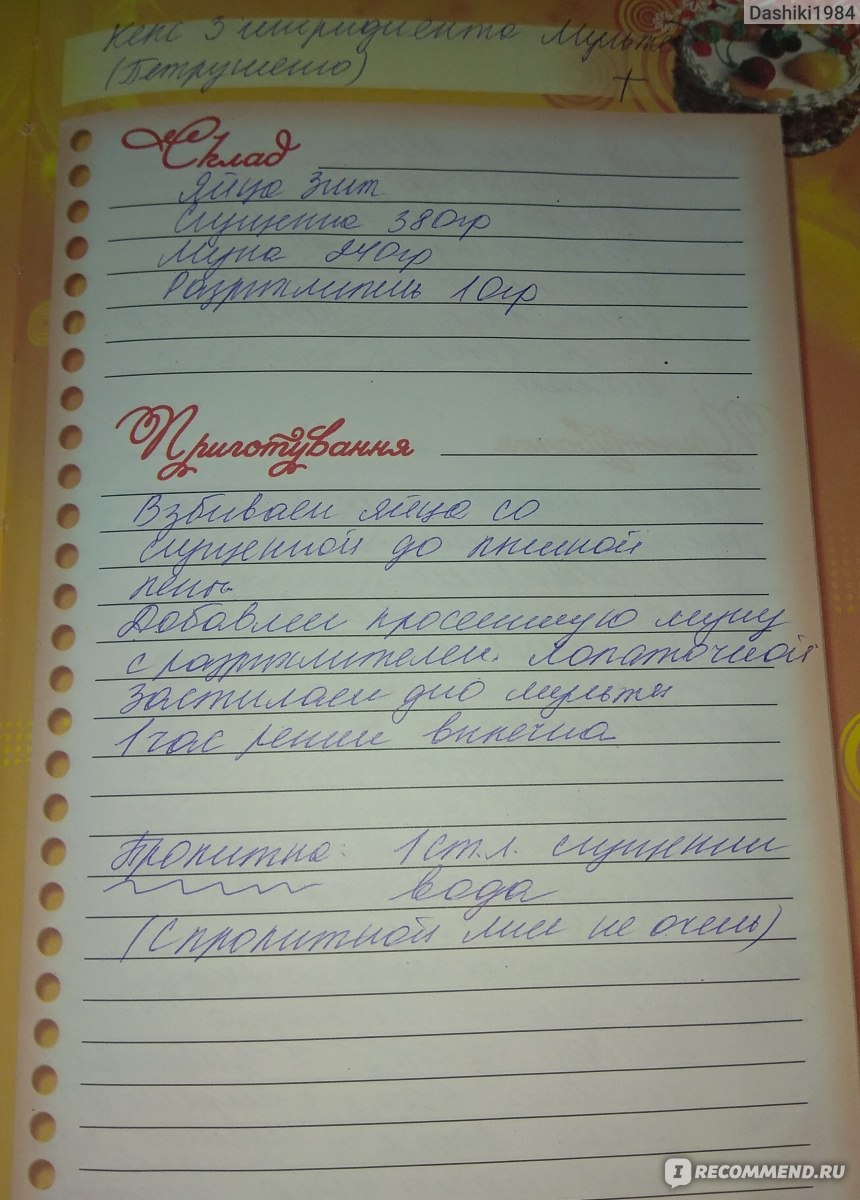 Dashiki1984
Кекс 3 ингридиента Мульти
(Петрушенко)
+
Склад
Яйца 3шт
Сгущенка 380гр
Мука 240гр
Разрыхлитель 10гр
Приготування
Взбиваем яйца со
сгущенкой до пышной
пены.
Добавляем просеянную муку
с разрыхлителем. Лопаточкой
Застилаем дно мульты
1 час режим выпечка
Пропитка: 1 ст.л. сгущенки
вода
(С пропиткой мне не очень)
IRECOMMEND.RU